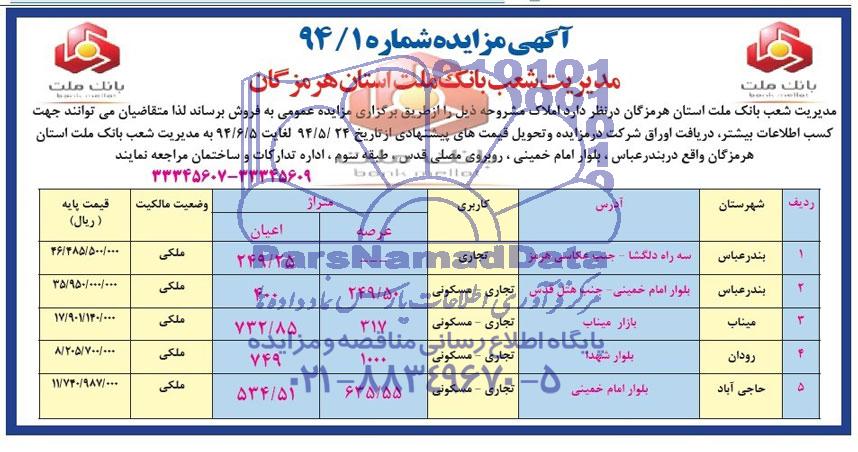 آگهی مزایده شماره ۹۴/۱
مدیریت شعب بانک ملت استان هرمزگان
بانک ملت
bank mellat
بانک ملت
bank mellat
مدیریت شعب بانک ملت استان هرمزگان درنظر دارد املاک مشروحه ذیل را ازطریق برگزاری مزایده عمومی به فروش برساند لذا متقاضیان می توانند جهت
کسب اطلاعات بیشتر، دریافت اوراق شرکت درمزایده وتحویل قیمت های پیشنهادی ازتاریخ ۹۴/۵/۲۴ لغایت ۹۴/۶/۵ به مدیریت شعب بانک ملت استان
هرمزگان واقع دربندرعباس ، بلوار امام خمینی ، روبروی مصلی قدس ، طبقه سوم ، اداره تدارکات و ساختمان مراجعه نمایند
۳۳۳۴۵۶۰۷-۳۳۳۴۵۶۰۹
ردیف شهرستان آدرس کاربری متراژ وضعیت مالکیت قیمت پایه
عرصه اعیان ( ریال)
۱ بندرعباس سه راه دلگشا - جنب عکاسی هرمز تجاری ---- ۲۴۹/۲۵ ملکی ۴۶/۴۸۵/۵۰۰/۰۰۰
۲ بندرعباس بلوار امام خمینی - جنب هتل قدس تجاری - مسکونی ۲۴۹/۵۰ ۴۰۰ ملکی ۳۵/۹۵۰/۰۰۰/۰۰۰
۳ میناب بازار میناب تجاری - مسکونی ۳۱۷ ۷۳۲/۸۵ ملکی ۱۷/۹۰۱/۱۴۰/۰۰۰
۴ رودان بلوار شهدا تجاری - مسکونی ۱۰۰۰ ۷۴۹ ملکی ۸/۲۰۵/۷۰۰/۰۰۰
۵ حاجی آباد بلوار امام خمینی تجاری - مسکونی ۶۳۵/۵۵ ۵۳۴/۵۱ ملکی ۱۱/۷۴۰/۹۸۷/۰۰۰
ParsNamadData
مرکز فرآوری اطلاعات پارس نماد داده ها
پایگاه اطلاع رسانی مناقصه و مزایده
۰۲۱-۸۸۳۴۹۶۷۰-۵